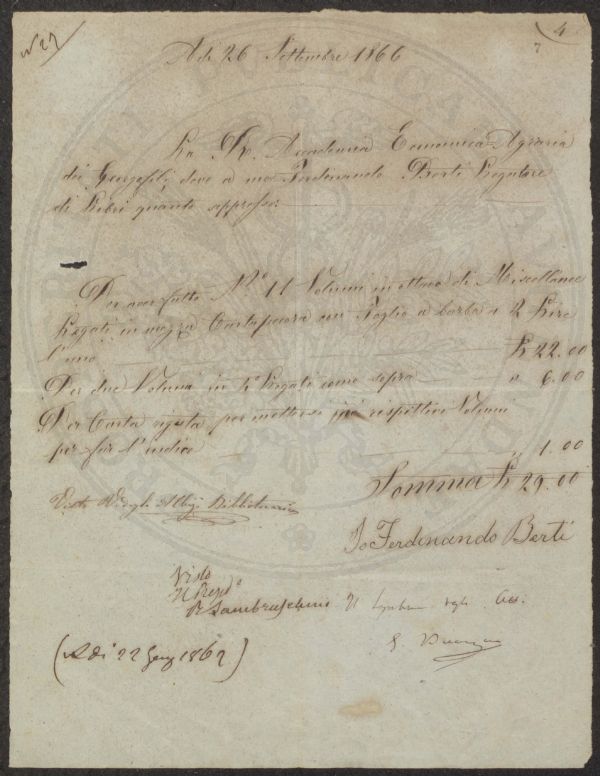 N 27
4
7
A dì 26 Settembre 1866
La R. Accademia Economica-Agraria
dei Georgofili, deve a me Ferdinando Berti Legatore
di Libri quanto appresso
Per aver fatto N.º 11 Volumi in ottavo di Miscellanee
Legati in mezza Cartapecora con Foglio a barba a 2 Lire
l'uno L 22.00
Per due Volumi in 4º Legati come sopra " 6.00
Per Carta rigata per mettere nei rispettivi Volumi
per far l'indice " 1.00
Somma L 29.00
Visto Bibliotecario
Io Ferdinando Berti
Visto
Il Presid.e
R Lambruschini Il degli Atti
(A dì 22 Genn 1867)